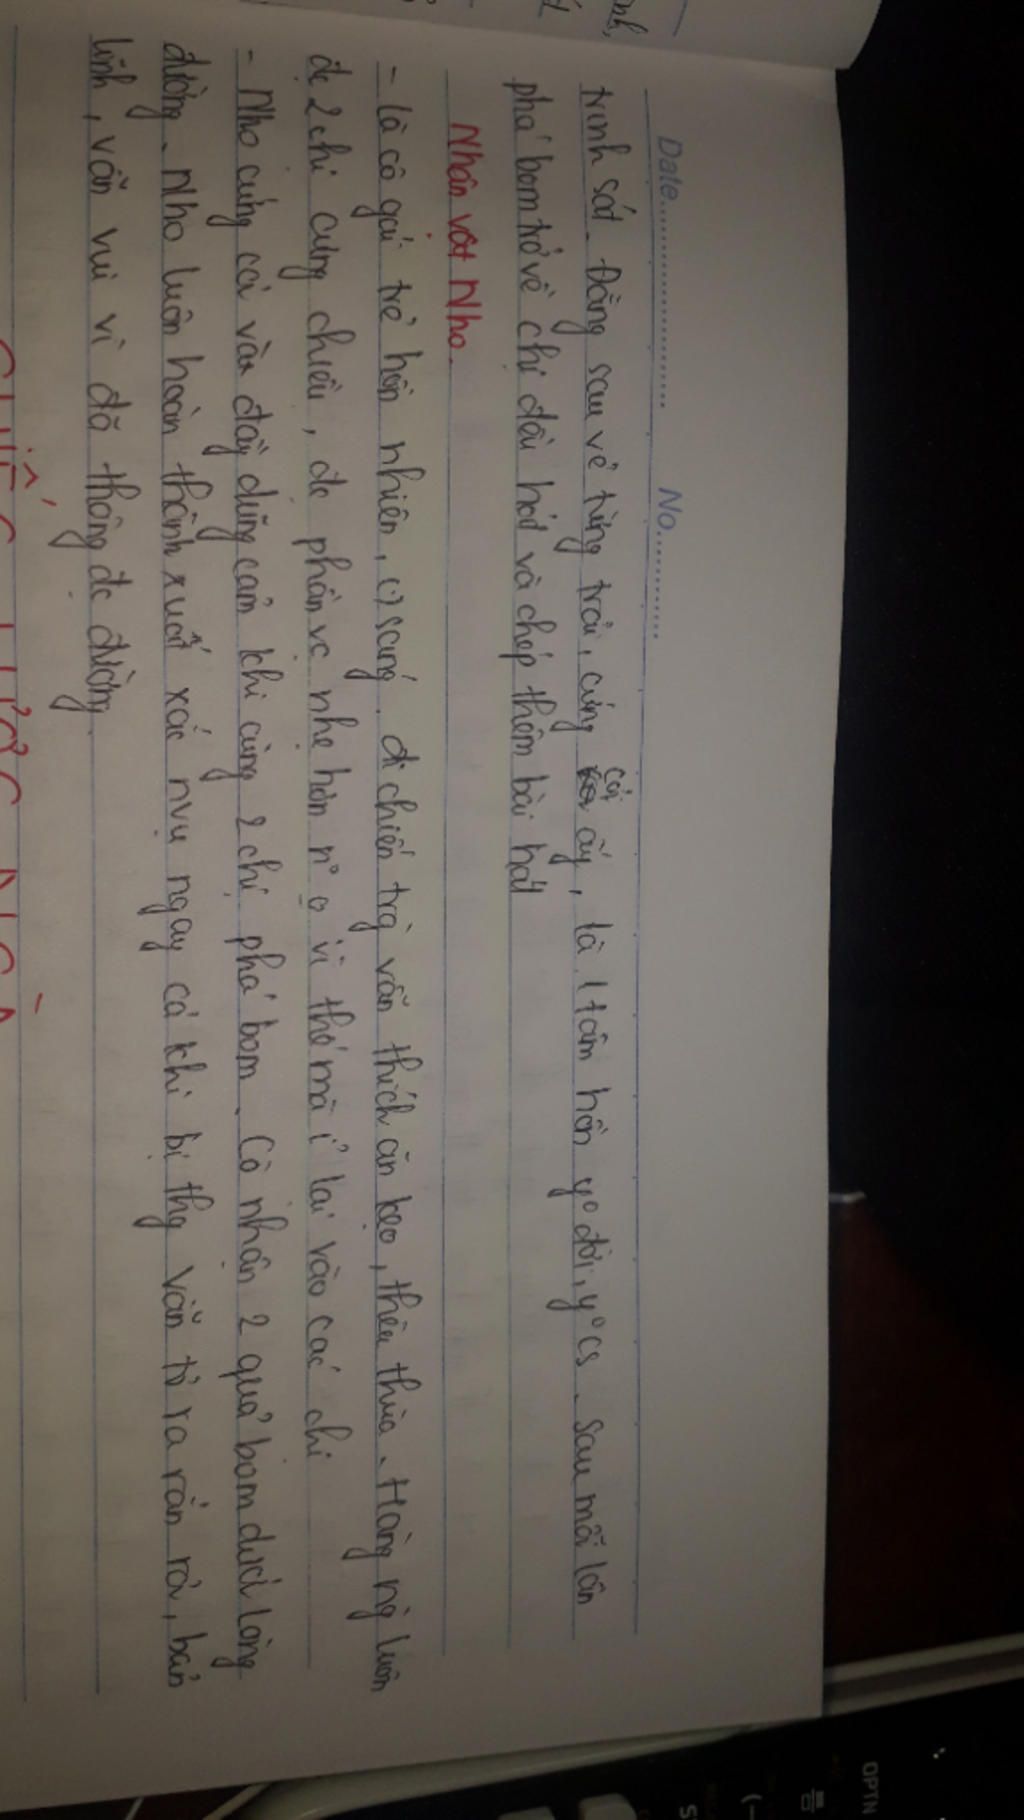 Date............... No...............
trinh sát. Đằng sau vẻ từng trải, cứng cỏi ấy, là 1 tâm hồn yº đời, yºcs. Sau mỗi lần
phá bom trở về chị đòi hát và chép thêm bài hát
Nhân vật Nho.
- là cô gái trẻ hồn nhiên, sáng. đi chiến trg vẫn thích ăn kẹo, thêu thùa. Hàng ng luôn
đc 2 chị cưng chiều, đc phân vc nhẹ hơn nº o vì thế mà ỉ lại vào các chị
- Nho cứng cỏi và đầy dũng cảm khi cùng 2 chị phá bom. Cô nhận 2 quả bom dưới lòng
đường. Nho luôn hoàn thành xuất xắc nvụ ngay cả khi bị thg vẫn tỏ ra rắn rỏi, bản
lĩnh, vẫn vui vì đã thông đc đường.